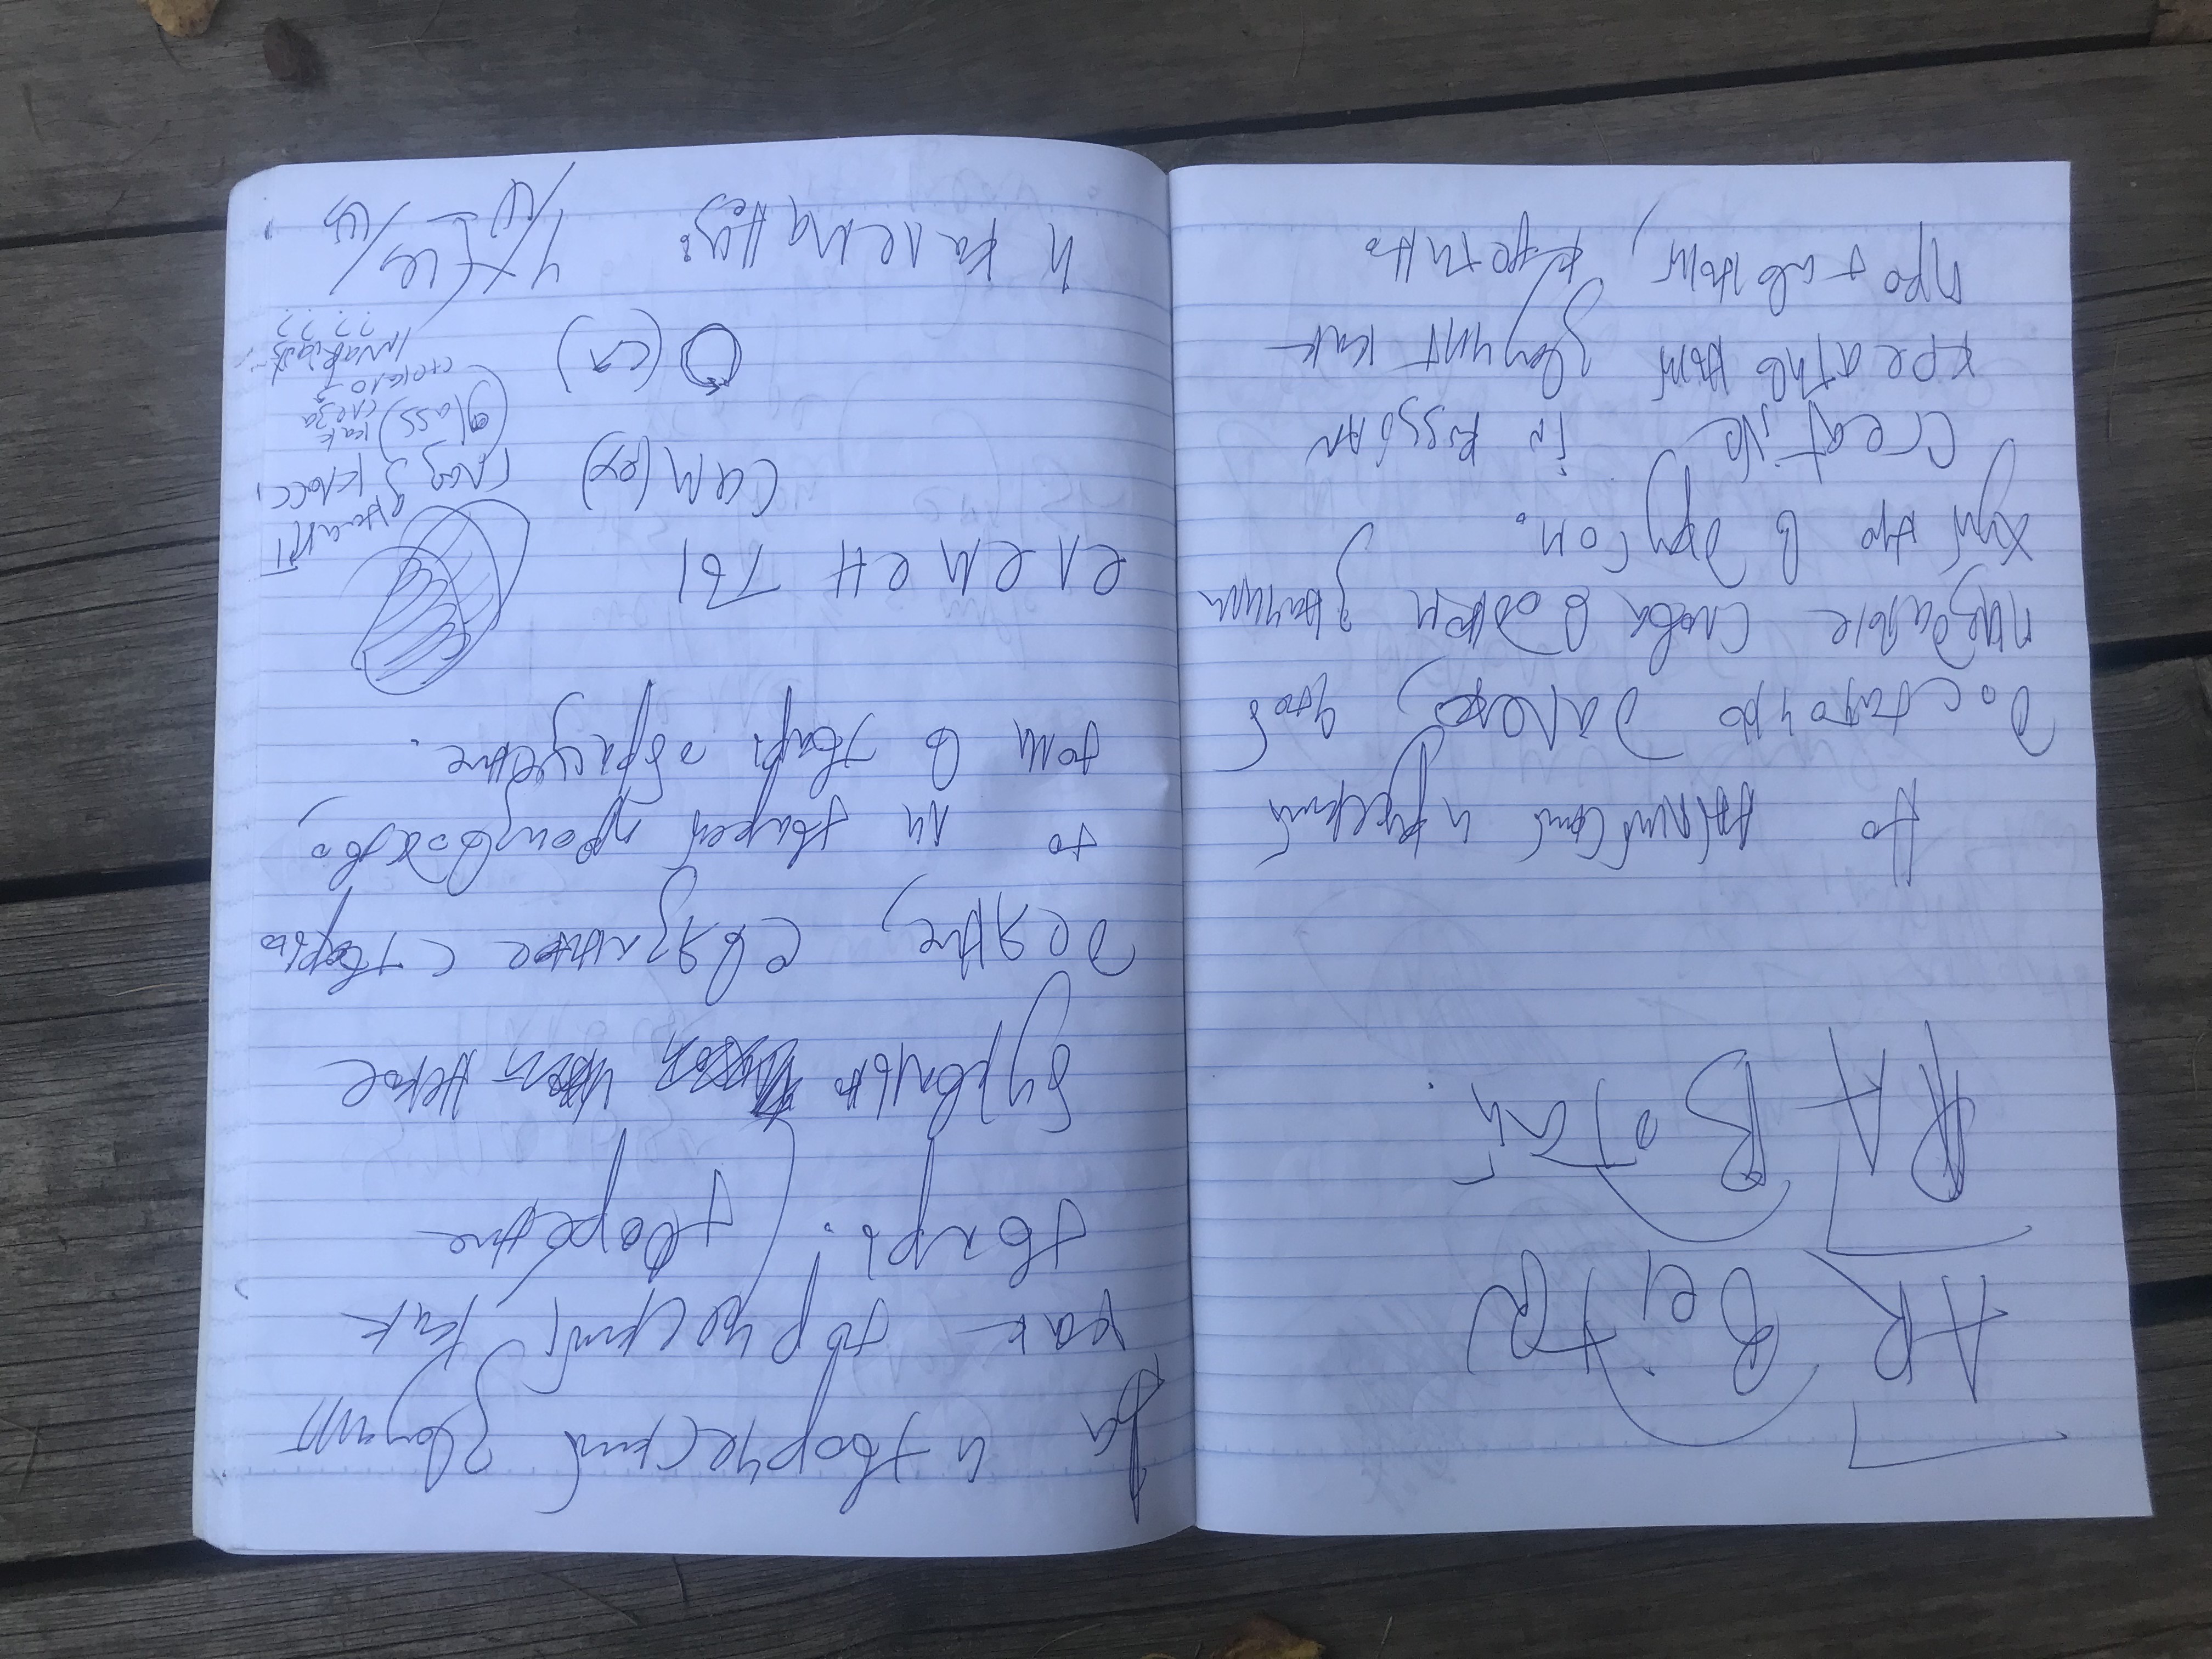 AR Beitn
RA Вотай.
Но английский и русский
достаточно далеко, чтоб
пиздатые слова в одном значили
хуйню в другом.
Creative in Russian
креативный звучит как
противный, кретино
Да и творческий звучит
как торческий, как
тварь. творение
буквально некое
деяние, связанное с тварью
то ли тварей производство,
то ли в тварь обращение.
елемен ты
сам(ех)
О(ся)
и калеманец:
глаз значит
класс,
(glass) как
слеза
стекло я
invariants
? ? ? ?